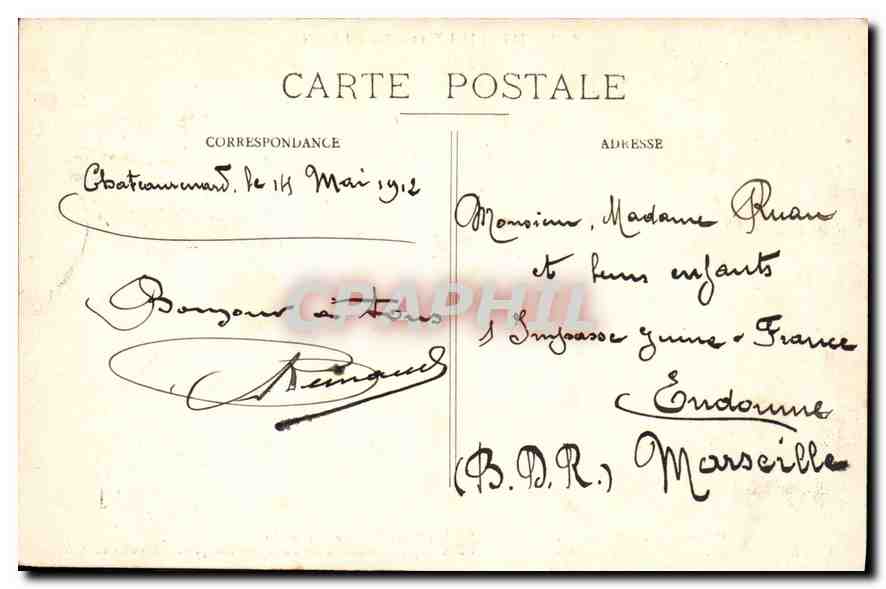 CARTE POSTALE
CORRESPONDANCE
Chateaurenard, le 14 Mai 1912
Bonjour à tous
ADRESSE
Monsieur, Madame Ruan
et leurs enfants
1 Impasse France
Endoume
(B.D.R.) Marseille
CPAPHIL